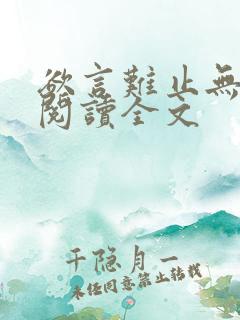 欲言難止無
閱讀全文
千隐月一
未经同意禁止转载